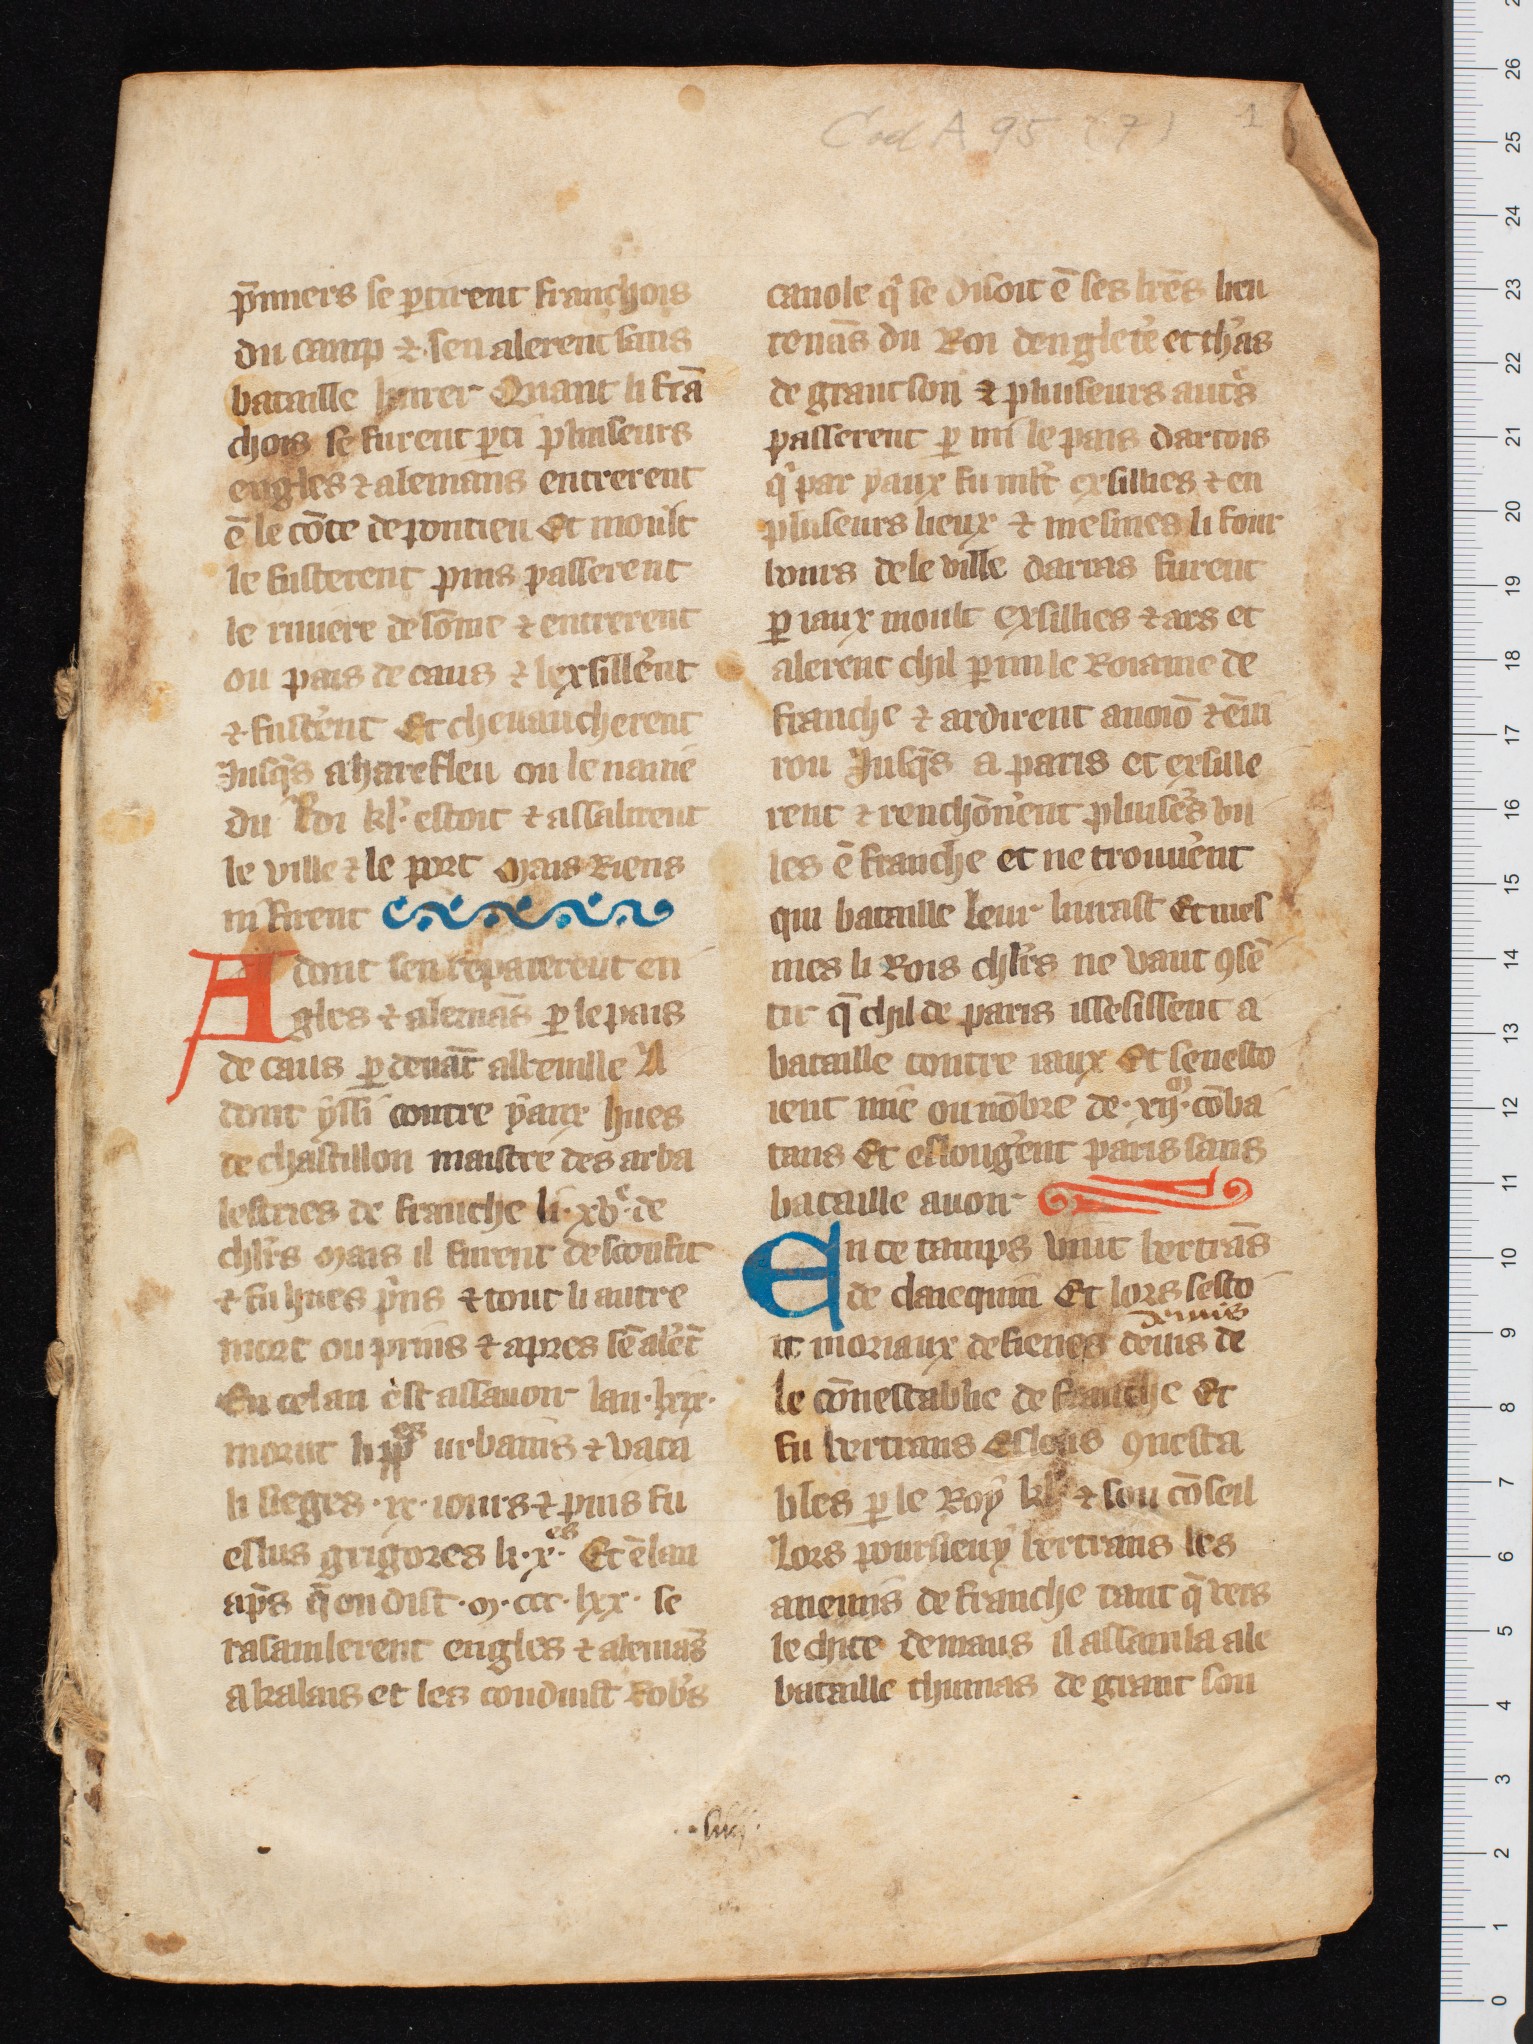 Cod A 95 (7) 1
p̄miers se ꝑtirent franchois
du camp ⁊ sen alerent sans
bataille liurer Quant li frā
chois se furent ꝑti pluiseurs
engles ⁊ alemans entrerent
ē le cōte de pontieu Et moult
le fusterent puis passerent
le riuiere de sōme ⁊ entrerent
ou pais de caus ⁊ lexsillēnt
⁊ fustēnt Et cheuaucherent
Jusq̄s a harefleu ou le nauie
du Roi kl' estoit ⁊ assalirent
le ville ⁊ le port Mais Riens
ni firent
Adont sen reparerent en
gles ⁊ alemās ꝑ le pais
de caus ꝑ deuāt abbeuille A
dont yssi contre yaux hues
de chastillon maistre des arba
lestries de franche li·xvᶜ·de
chlr̄s Mais il furent desconfit
⁊ fu hues p̄ns ⁊ tout li autre
mort ou prins ⁊ apres sē alēt
En cel an cest assauoir lan·lxix·
morut li pp̄es urbains ⁊ vaca
li sieges·ix·iours ⁊ puis fu
eslus grigores li·x·es Et ē lan
ap̄s q̄ on dist·m·ccc·lxx·se
rasamlerent engles ⁊ alemās
a kalais et les conduist Rob's
canole q̄ se disoit ē ses lr̄es lieu
tenās du Roi dengletē et th'as
de grantson ⁊ pluiseurs aut's
passerent ꝑ mi le pais dartois
q̄ par yaux fu ml't exsillies ⁊ en
pluseurs lieux ⁊ mesmes li four
bours de le ville darras furent
ꝑ iaux moult exsillies ⁊ ars et
alerent chil ꝑ mi le Roiame de
franche ⁊ ardirent
rou Jusq̄s a paris et exsille
rent ⁊ renchōn'ent pluis's vil
les ē franche et ne trouu'ent
qui bataille leur liurast Et mes
mes li Rois chl's ne vaut ꝯsē
tir q̄ chil de paris issesissent a
bataille contre iaux Et senesto
ient mie ou nōbre de·xijᵐ·cōba
tans Et eslong'ent paris sans
bataille auoir
En ce tamps vint bertrās
de claiequin Et lors sesto
demis
it moriaux de fienes demis de
le cōnestablie de franche Et
fu bertrans Eslous ꝯnesta
bles ꝑ le Roy kl' ⁊ son cōseil
Lors poursieuy bertrans les
anemis de franche tant q̄ vers
le chite demans il assamla a le
bataille thumas de grant son